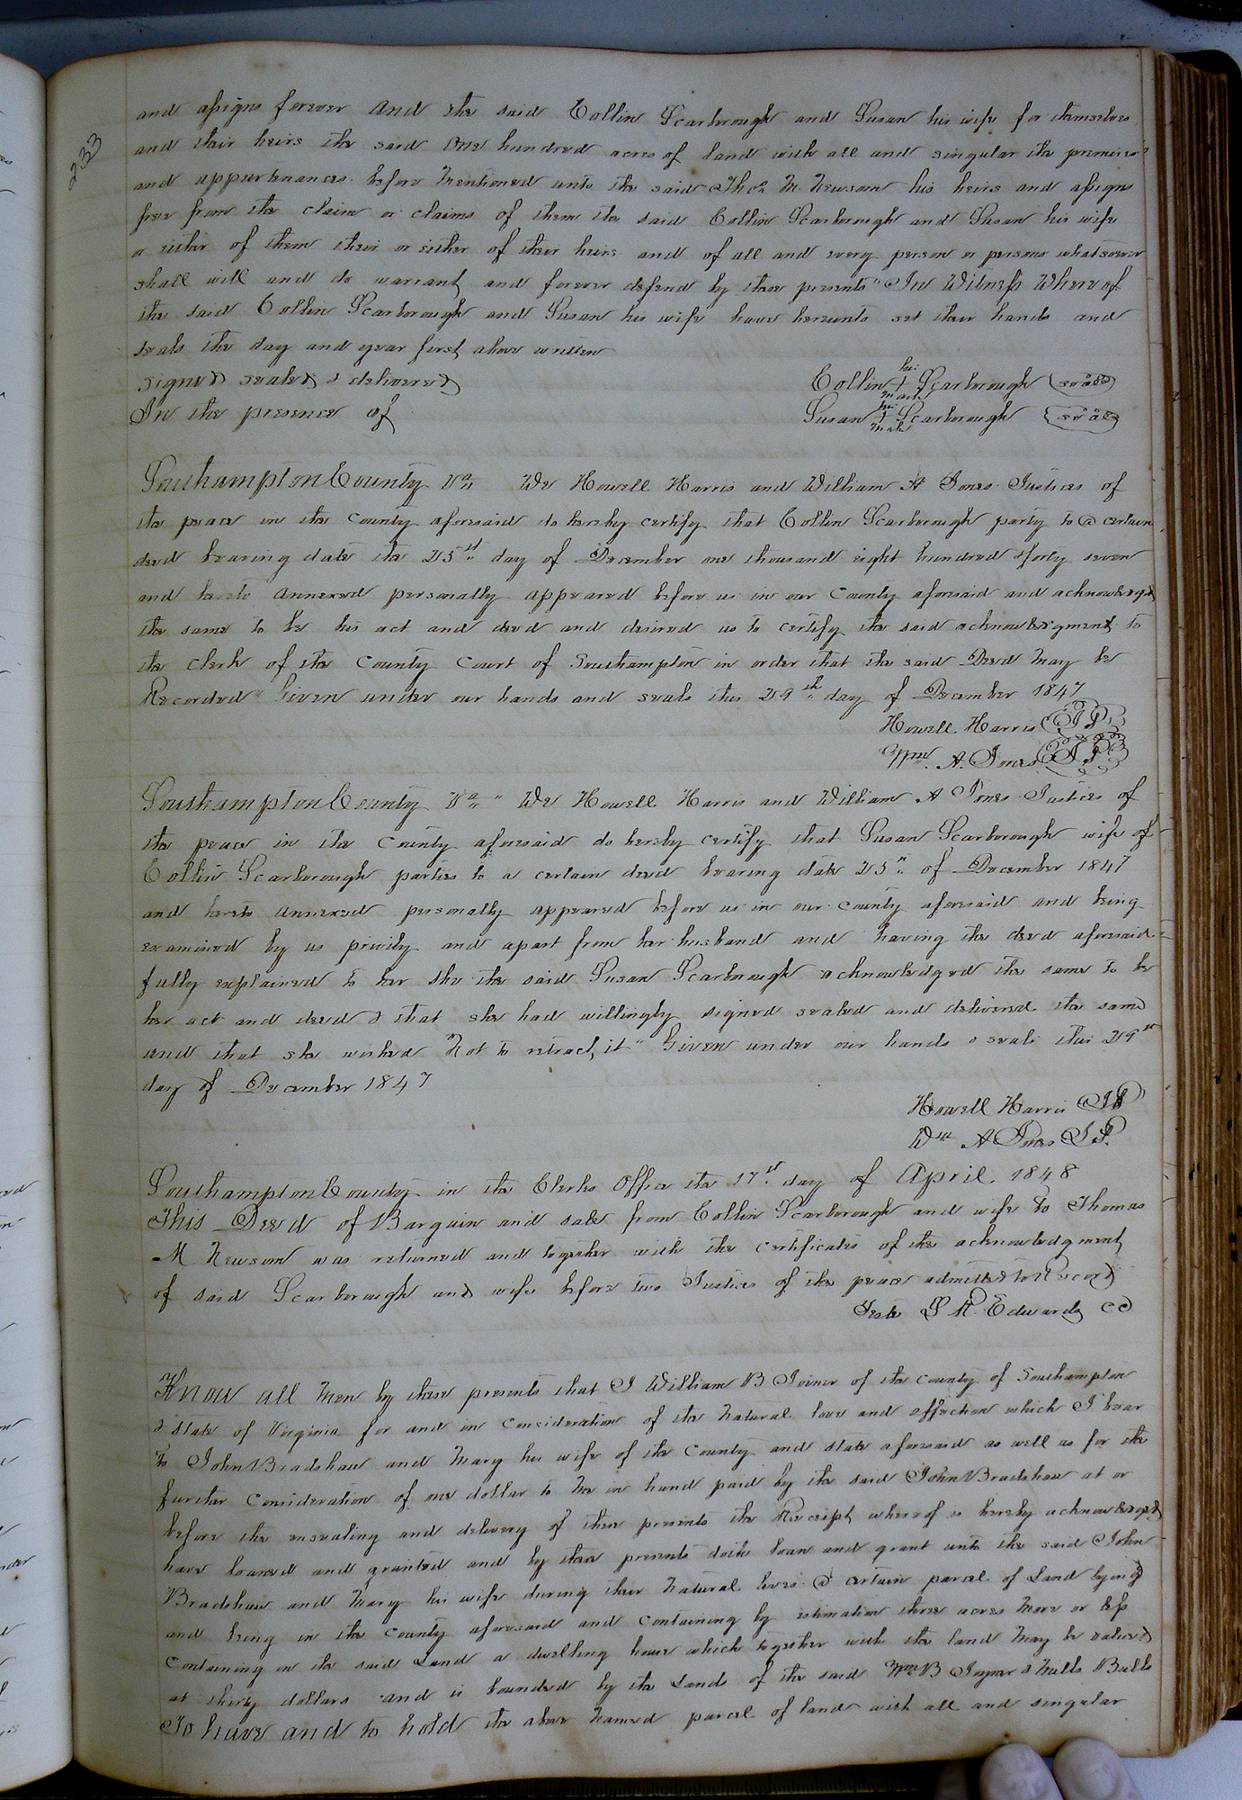 233
and assigns forever And the said Collin Scarborough and Susan his wife for themselves
and their heirs the said One hundred acres of land with all and singular the premises
and appurtenances before Mentioned unto the said Thos. M. Newsom his heirs and assigns
free from the claim or claims of them the said Collin Scarborough and Susan his wife
or either of them their or either of their heirs and of all and every person or persons whatsoever
shall will and do warrant and forever defend by these presents" In Witness Whereof
the said Collin Scarborough and Susan his wife have hereunto set their hands and
seals the day and year first above written
signed sealed & delivered
In the presence of
Collin his + mark Scarborough (seal)
Susan her + mark Scarborough (seal)
Southampton County Va. We Howell Harris and William A Jones Justices of
the peace in the County aforesaid do hereby certify that Collin Scarborough party to a certain
deed bearing date the 25th day of December one thousand eight hundred & forty seven
and hereto Annexed personally appeared before us in our County aforesaid and acknowledged
the same to be his act and deed and desired us to certify the said acknowledgment to
the Clerk of the County Court of Southampton in order that the said Deed May be
Recorded" Given under our hands and seals this 29th day of December 1847
Howell Harris (JP)
Wm. A. Jones (JP)
Southampton County Va. " We Howell Harris and William A Jones Justices of
the peace in the County aforesaid do hereby certify that Susan Scarborough wife of
Collin Scarborough parties to a certain deed bearing date 25th of December 1847
and hereto Annexed personally appeared before us in our County aforesaid and being
examined by us privily and apart from her husband and having the deed aforesaid
fully explained to her she the said Susan Scarborough acknowledged the same to be
her act and deed & that she had willingly signed sealed and delivered the same
and that she wished Not to retract it" Given under our hands & seals this 29th
day of December 1847
Howell Harris JP
Wm A Jones J.P.
Southampton County in the Clerks Office the 17th day of April 1848
This Deed of Bargain and sale from Collin Scarborough and wife To Thomas
M Newsom was returned and together with the certificates of the acknowledgment
of said Scarborough and wife before two Justices of the peace admitted to Record
Teste L R Edwards CC
Know all Men by these presents that I William B Joiner of the County of Southampton
& State of Virginia for and in Consideration of the Natural love and affection which I bear
To John Bradshaw and Mary his wife of the County and state aforesaid as well as for the
further Consideration of one dollar to Me in hand paid by the said John Bradshaw at or
before the ensealing and delivery of these presents the Receipt whereof is hereby acknowledged
have loaned and granted and by these presents doth loan and grant unto the said John
Bradshaw and Mary his wife during their Natural lives a certain parcel of Land lying
and being in the County aforesaid and Containing by estimation three acres More or less
Containing on the said Land a dwelling house which together with the land May be valued
at thirty dollars and is bounded by the Lands of the said Wm B Joyner & Mills Butts
To have and to hold the above Named parcel of land with all and singular